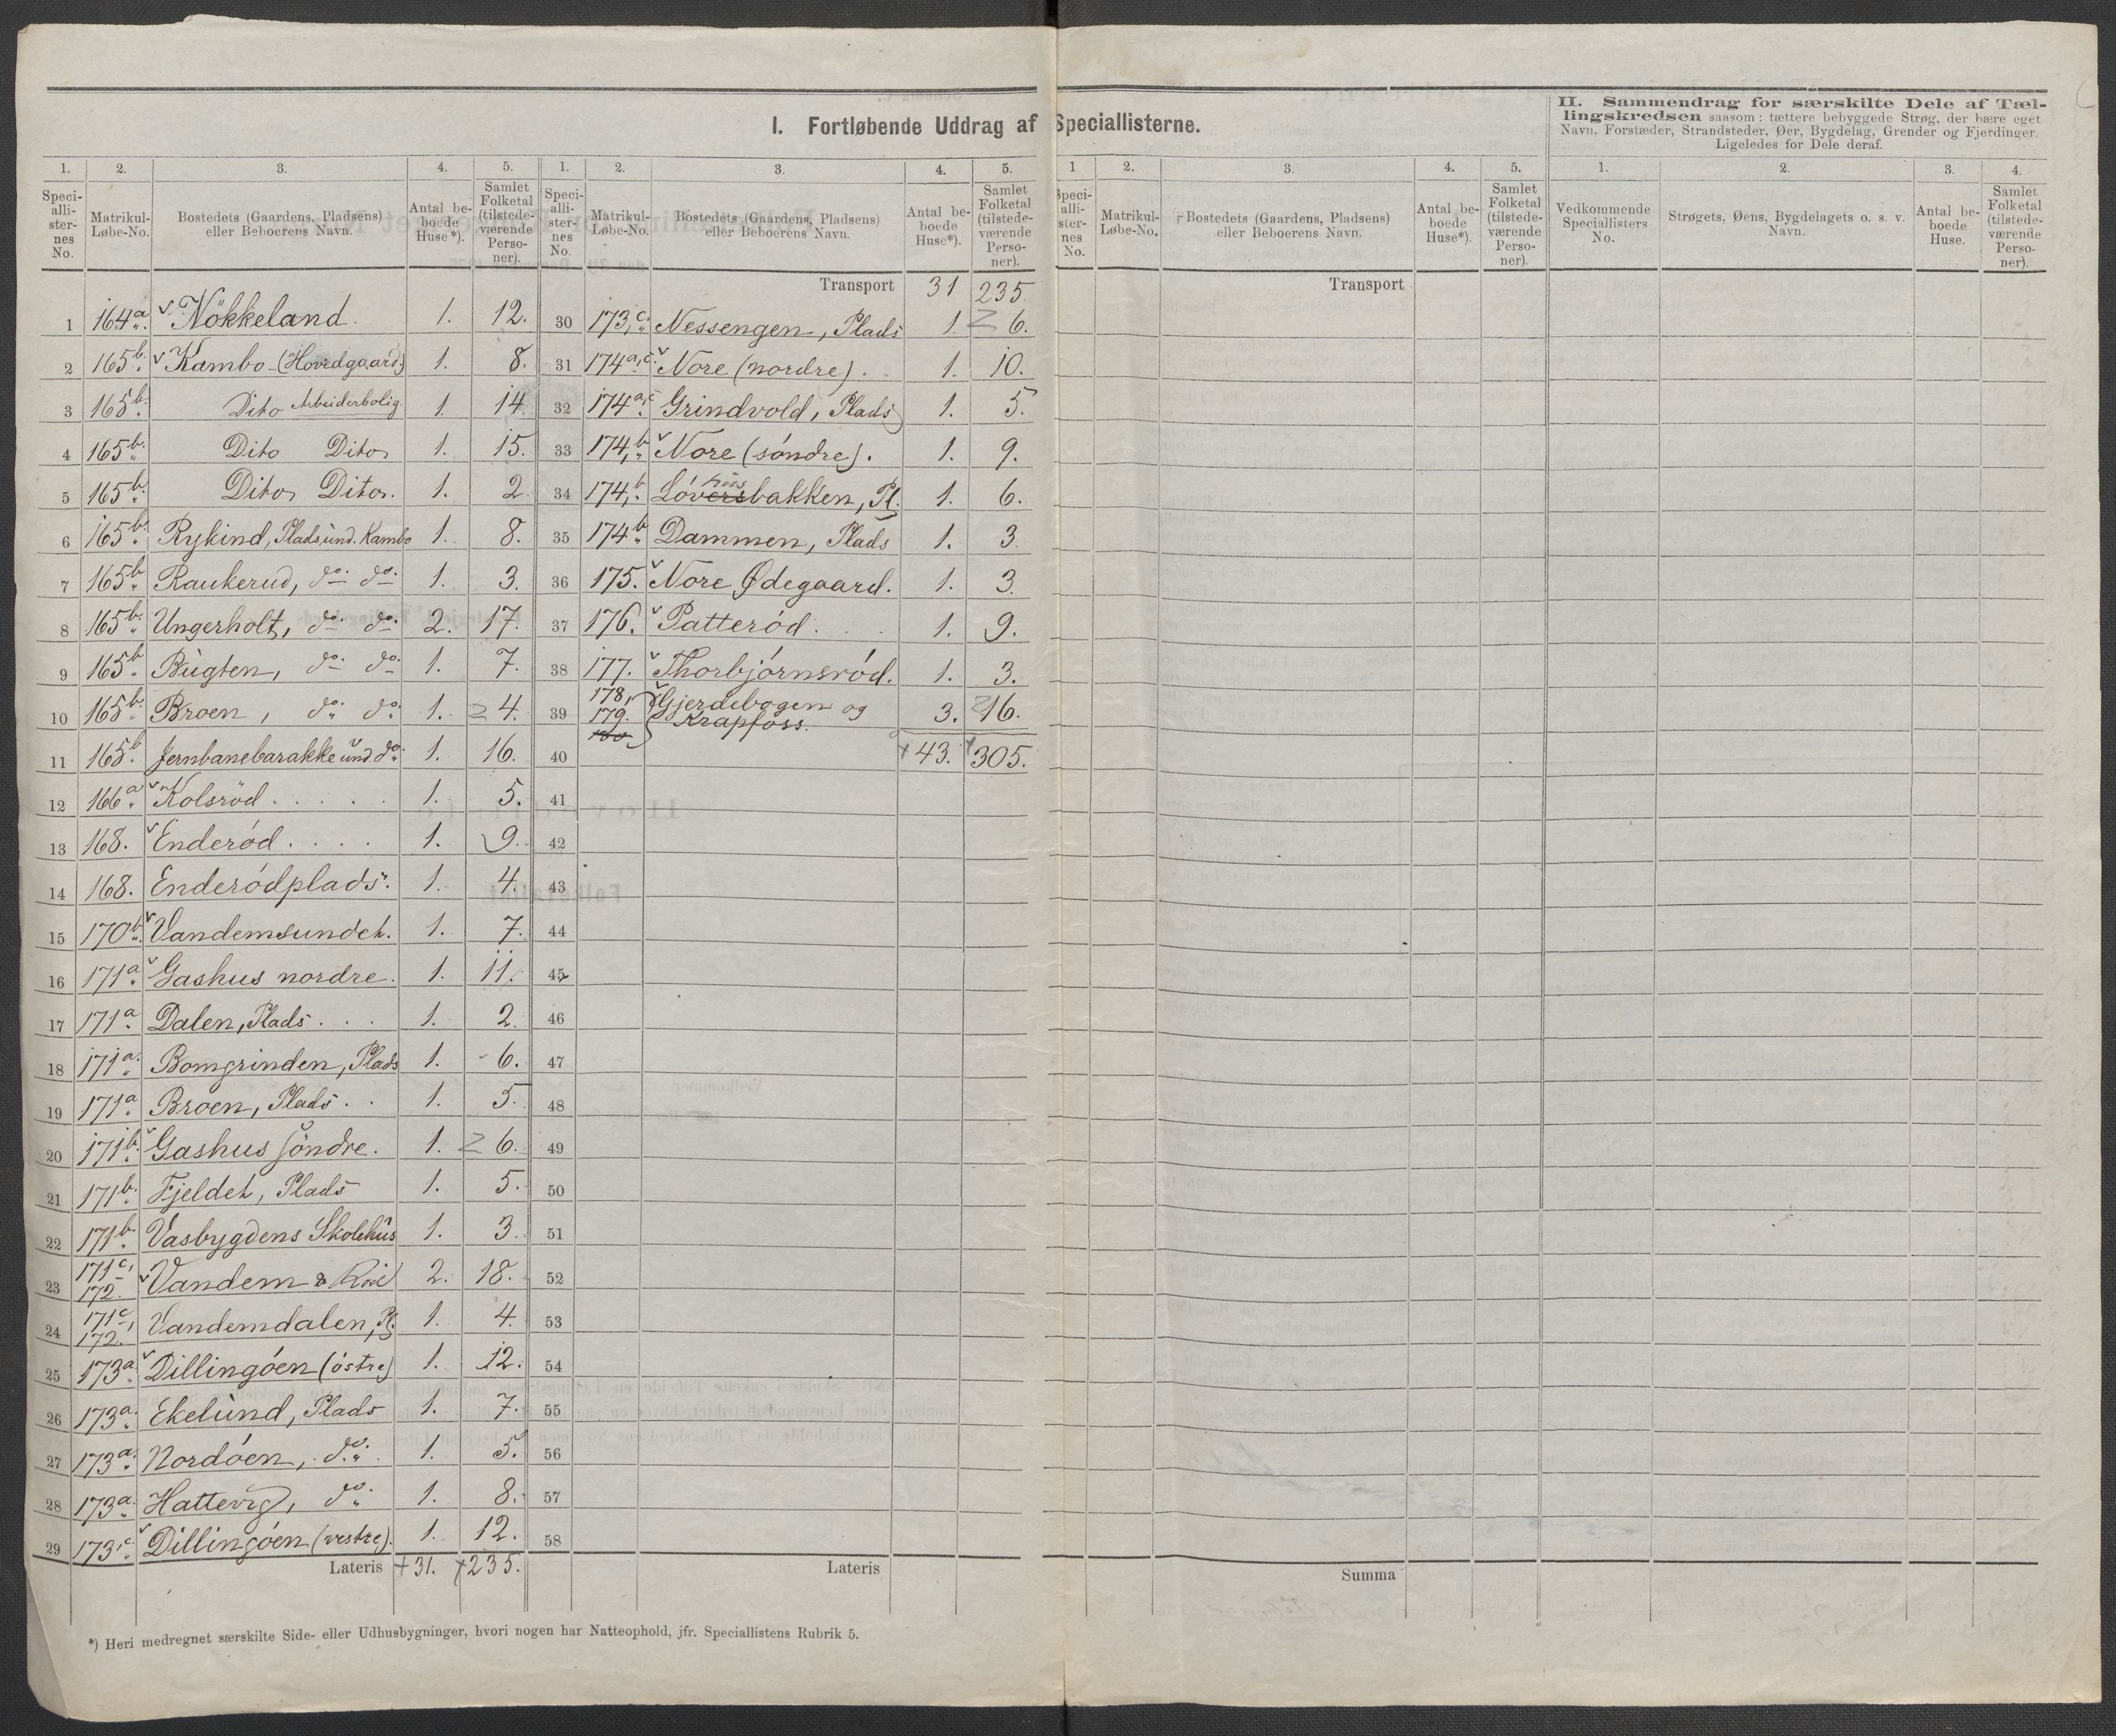 I. Fortløbende Uddrag af Speciallisterne.
1. 2. 3. 4. 5.
Speciallisternes No. Matrikul-Løbe-No. Bostedets (Gaardens, Pladsens) eller Beboerens Navn. Antal beboede Huse*). Samlet Folketal (tilstedeværende Personer).
1 164a. Nökkeland. 1. 12.
2 165b. Kambo (Hovedgaard) 1. 8.
3 165b. Dito Arbeiderbolig 1. 14.
4 165b. Dito Dito 1. 15.
5 165b. Dito Dito. 1. 2.
6 165b. Rykind, Plads und. Kambo 1. 8.
7 165b. Raukerud, do. do. 1. 3.
8 165b. Ungerholt, do. do. 2. 17.
9 165b. Bugten, do. do. 1. 7.
10 165b. Broen, do. do. 1. 4.
11 165b. Jernbanebarakke und. do. 1. 16.
12 166a. Kolsröd . . . . . 1. 5.
13 168. Enderød . . . . 1. 9.
14 168. Enderødplads. 1. 4.
15 170b. Vandemsundet. 1. 7.
16 171a. Gashus nordre. 1. 11.
17 171a. Dalen, Plads . . . 1. 2.
18 171a. Bomgrinden, Plads 1. 6.
19 171a. Broen, Plads . . 1. 5.
20 171b. Gashus söndre. 1. 6.
21 171b. Fjeldet, Plads 1. 5.
22 171b. Vasbygdens Skolehus 1. 3.
23 171c, 172. Vandem & 2. 18.
24 171c, 172. Vandemdalen, Pl. 1. 4.
25 173a. Dillingøen (østre) 1. 12.
26 173a. Ekelund, Plads 1. 7.
27 173a. Nordøen, do. 1. 5.
28 173a. Hattevig, do. 1. 8.
29 173c. Dillingøen (vestre). 1. 12.
Lateris 31. 235.
1. 2. 3. 4. 5.
Speciallisternes No. Matrikul-Løbe-No. Bostedets (Gaardens, Pladsens) eller Beboerens Navn. Antal beboede Huse*). Samlet Folketal (tilstedeværende Personer).
Transport 31 235.
30 173,c. Nessengen, Plads 1. 6.
31 174a,c. Nore (nordre). 1. 10.
32 174a,c Grindvold, Plads 1. 5.
33 174,b. Nore (søndre). 1. 9.
34 174,b. Løversbakken, Pl. 1. 6.
35 174b. Dammen, Plads 1. 3.
36 175. Nore Ødegaard. 1. 3.
37 176. Patterød. . . 1. 9.
38 177. Thorbjørnsrød. 1. 3.
39 178, 179. 180 Gjerdebogen og Krapfoss. 3. 16.
40 43. 305.
41
42
43
44
45
46
47
48
49
50
51
52
53
54
55
56
57
58
Lateris
1 2. 3. 4. 5.
Speciallisternes No. Matrikul-Løbe-No. Bostedets (Gaardens, Pladsens) eller Beboerens Navn. Antal beboede Huse*). Samlet Folketal (tilstedeværende Personer).
Transport
Summa
II. Sammendrag for særskilte Dele af Tæl-
lingskredsen saasom: tættere bebyggede Strøg, der bære eget
Navn, Forstæder, Strandsteder, Øer, Bygdelag, Grender og Fjerdinger.
Ligeledes for Dele deraf.
1. 2. 3. 4.
Vedkommende Speciallisters No. Strøgets, Øens, Bygdelagets o. s. v. Navn. Antal beboede Huse. Samlet Folketal (tilstedeværende Personer).
*) Heri medregnet særskilte Side- eller Udhusbygninger, hvori nogen har Natteophold, jfr. Speciallistens Rubrik 5.